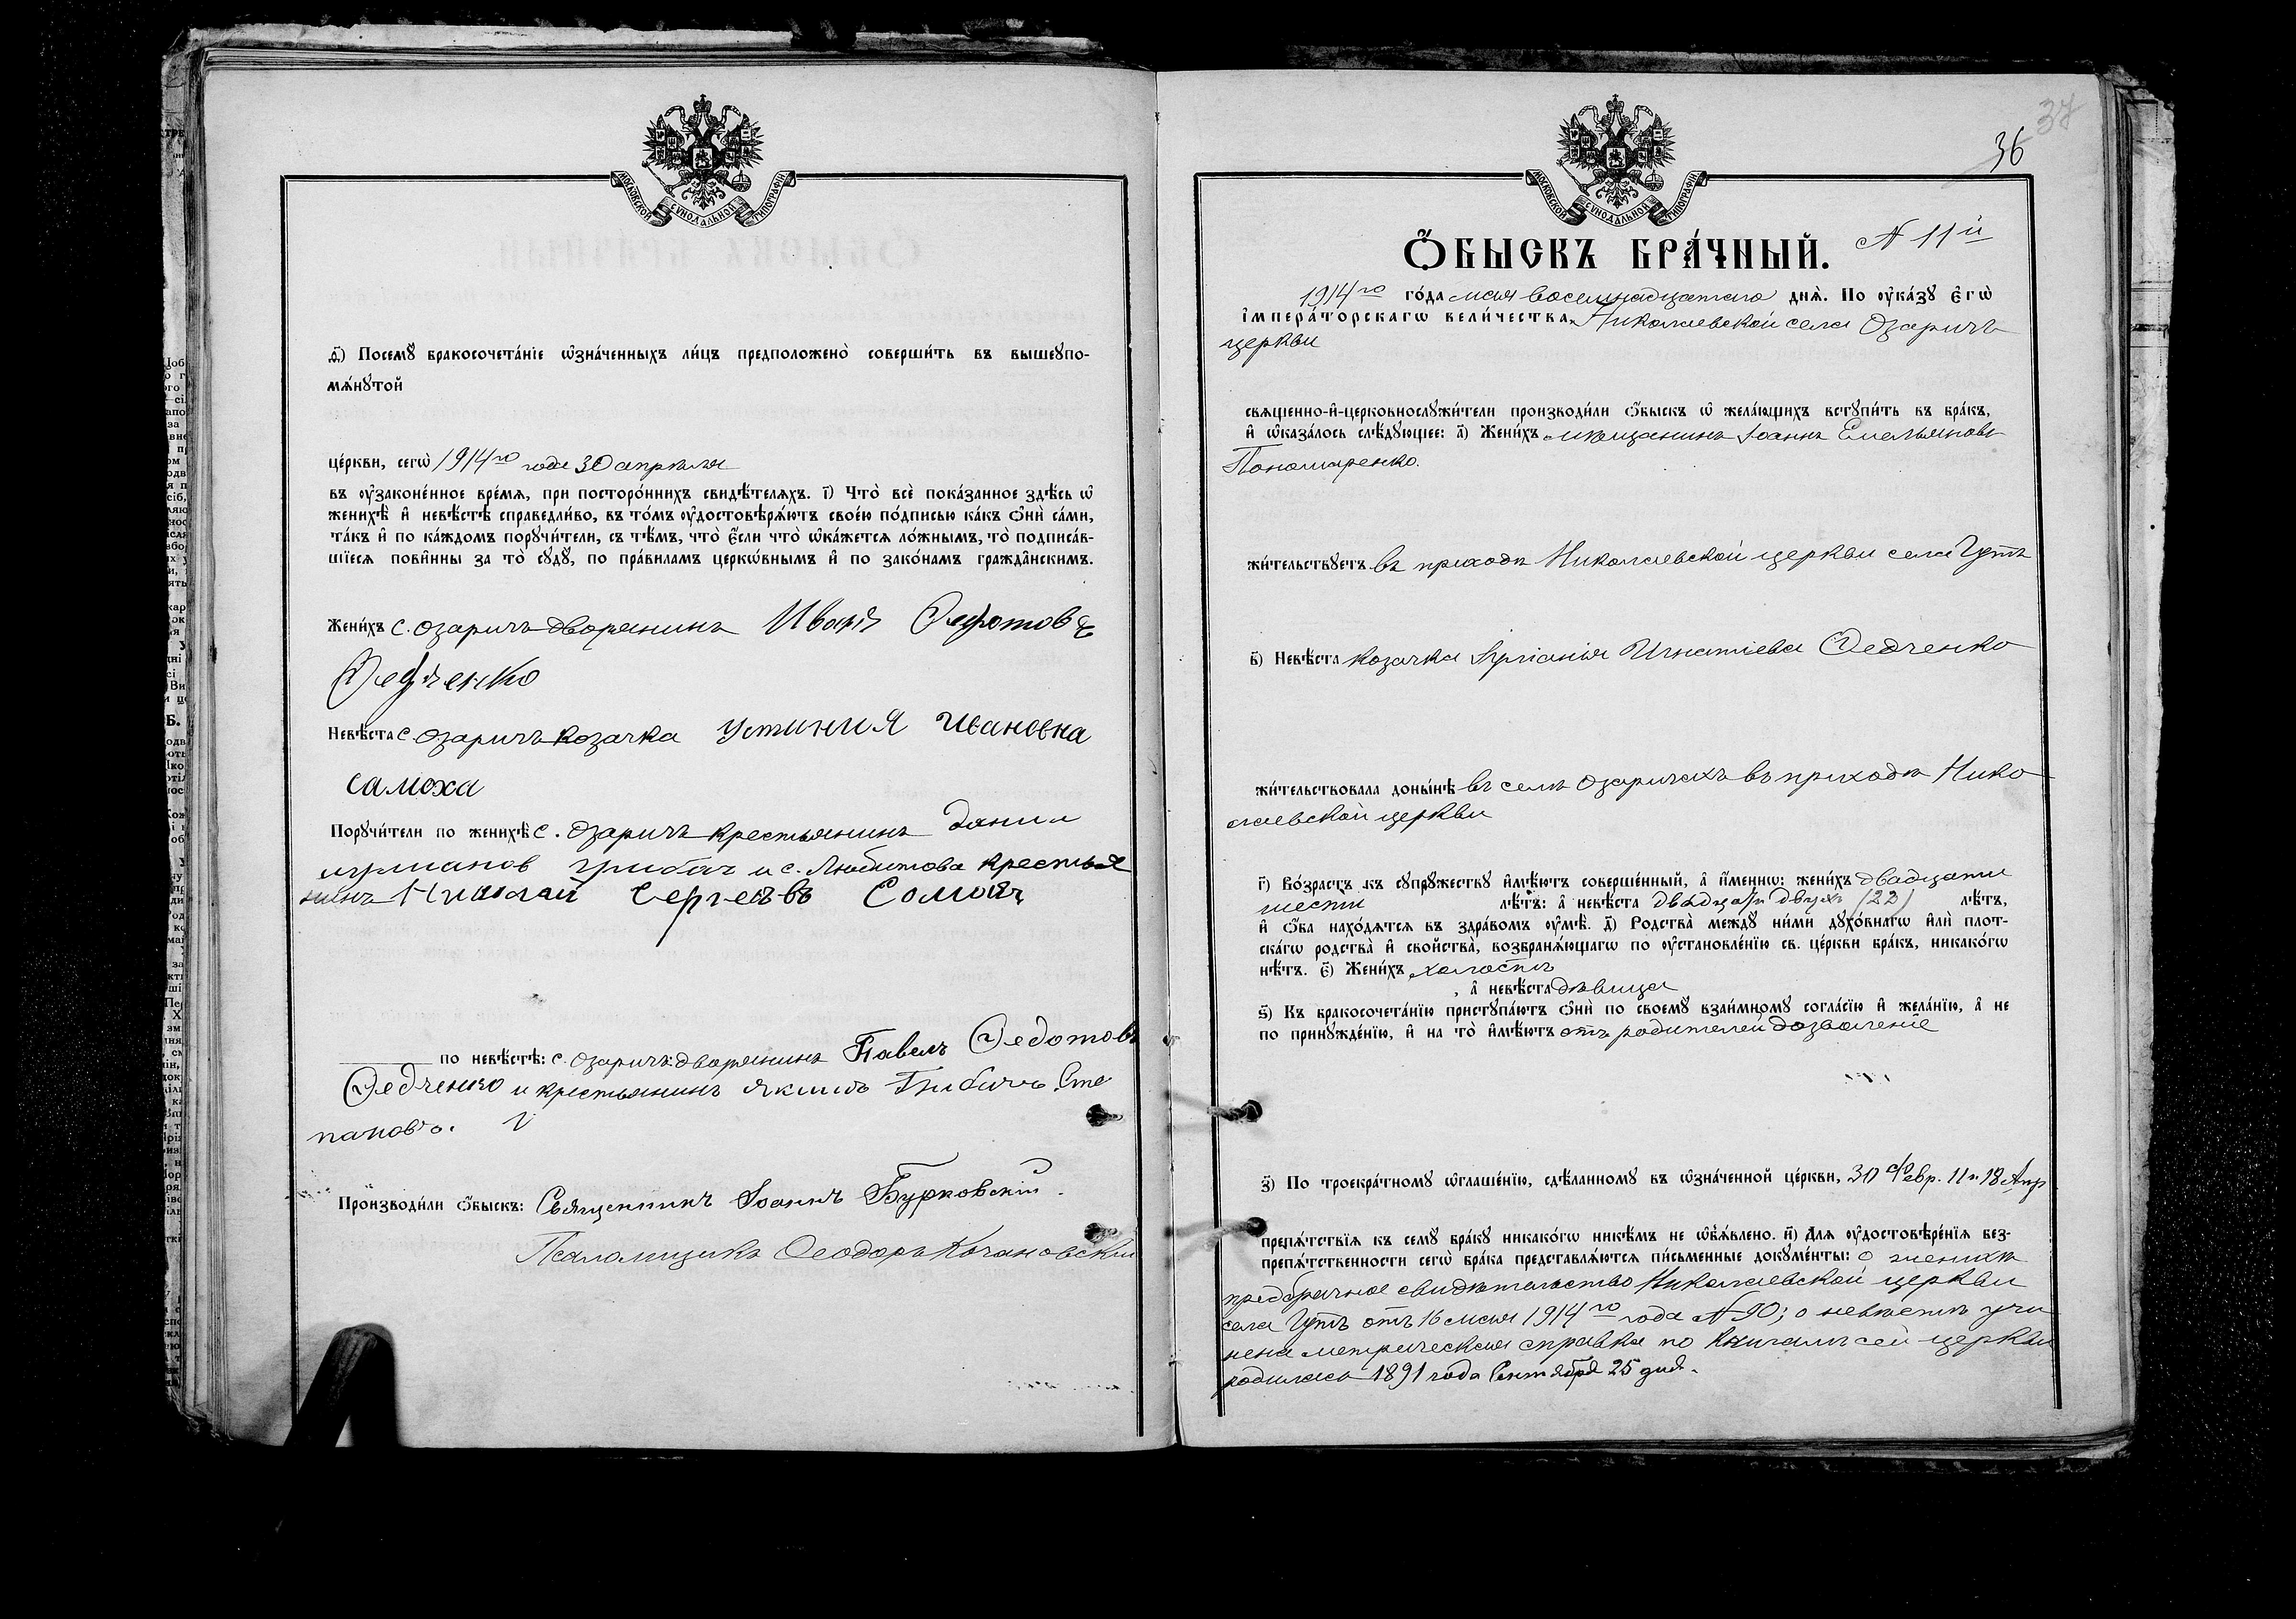 МОСКОВСКОЙ СѴНОДАЛЬНОЙ ТИПОГРАФІИ
ѳ҃) Посемꙋ бракосочета́ніе ѡ҆зна́ченныхъ ли́цъ предположено̀ соверши́ть въ вышеꙋпо-
мѧ́нꙋтой
це́ркви, сегѡ̀ 1914го года 30 апреля
въ ᲂу҆зако́ненное вре́мѧ, при посторо́ннихъ свидѣ́телѧхъ. і҃) Что̀ всѐ пока́занное здѣ́сь ѡ҆
женихѣ̀ и҆ невѣ́стѣ справедли́во, въ то́мъ ᲂу҆достовѣрѧ́ютъ свое́ю по́дписью ка́къ ѻ҆нѝ са́ми,
та́къ и҆ по ка́ждомъ порꙋчи́тели, съ тѣ́мъ, что̀ є҆́сли что̀ ѡ҆ка́жетсѧ ло́жнымъ, то̀ подписа́в-
шіесѧ пови́нны за то̀ сꙋдꙋ̀, по пра́виламъ церко́внымъ и҆ по зако́намъ гражда́нскимъ.
Жени́хъ с. Озаричъ дворянинъ Иванъ Федотовъ
Федченко
Невѣ́ста с. Озаричъ козачка Устиния Ивановна
Самоха
Порꙋчи́тели по женихѣ̀ с. Озаричъ крестьянинъ Данил
грибач и с. Любитова крестья
нинъ Николай Сергеевъ
по невѣ́стѣ: с. Озаричъ дворянинъ Павелъ Федотовъ
Федченко и крестьянинъ Яким Сте
пановъ.
Производи́ли ѻ҆́быскъ: Священникъ Іоаннъ Бурковскій.
Псаломщикъ Феодоръ Кочановскій
37
36
МОСКОВСКОЙ СѴНОДАЛЬНОЙ ТИПОГРАФІИ
Ѻ҆́БЫСКЪ БРА́ЧНЫЙ. № 11й
1914го го́да мая восемнадцатаго днѧ̀. По ᲂу҆ка́зꙋ є҆гѡ̀
і҆мпера́торскагѡ вели́чества, Николаевской села Озаричъ
церкви
свѧще́нно-и҆-церковнослꙋжи́тели производи́ли ѻ҆́быскъ ѡ҆ жела́ющихъ встꙋпи́ть въ бра́къ,
и҆ ѡ҆каза́лось слѣ́дꙋющее: а҃) Жени́хъ мѣщанинъ Іоаннъ Емельяновъ
Пономаренко.
жи́тельствꙋетъ въ приходѣ Николаевской церкви села Гутъ
в҃) Невѣ́ста козачка Игнатіева Федченко
жи́тельствовала доны́нѣ въ селѣ Озаричахъ въ приходѣ Нико
лаевской церкви
г҃) Во́зрастъ къ сꙋпрꙋ́жествꙋ и҆мѣ́ютъ соверше́нный, а҆ и҆́менно: жени́хъ двадцати
шести лѣ́тъ: а҆ невѣ́ста двадцати двухъ (22) лѣ́тъ,
и҆ ѻ҆́ба нахо́дѧтсѧ въ здра́вомъ ᲂу҆мѣ̀. д҃) Родства̀ междꙋ̀ ни́ми дꙋхо́внагѡ и҆лѝ плот-
ска́гѡ родства̀ и҆ сво́йства, возбранѧ́ющагѡ по ᲂу҆становле́нію св. це́ркви бра́къ, никако́гѡ
нѣ́тъ. є҃) Жени́хъ холостъ
, а҆ невѣ́ста дѣвица
ѕ҃) Къ бракосочета́нію пристꙋпа́ютъ ѻ҆нѝ по своемꙋ̀ взаи́мномꙋ согла́сію и҆ жела́нію, а҆ не
по принꙋжде́нію, и҆ на то̀ и҆мѣ́ютъ отъ родителей дозволеніе
з҃) По троекра́тномꙋ ѡ҆глаше́нію, сдѣ́ланномꙋ въ ѡ҆зна́ченной це́ркви, 30 Февр. 11 и 18 Апр
препѧ́тствіѧ къ семꙋ̀ бра́кꙋ никако́гѡ никѣ́мъ не ѡ҆б̾ѧ́влено. и҃) Длѧ ᲂу҆достовѣре́ніѧ без-
препѧ́тственности сегѡ̀ бра́ка представлѧ́ютсѧ пи́сьменные докꙋме́нты: о женихѣ
предбрачное свидѣтельство Николаевской церкви
села Гутъ отъ 16 мая 1914го года № 90; о невѣстѣ учи
нена метрическая справка по книгамъ сей церкви
родилась 1891 года Сентября 25 дня.